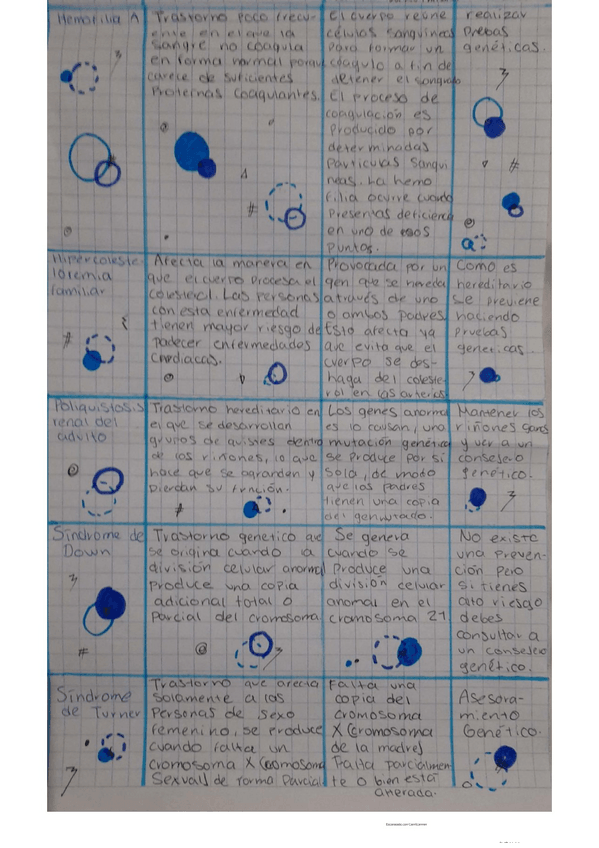 Hemofilia A
Trastorno poco frecu-
ente en el que la
sangre no coagula
en forma normal porque
carece de suficientes
Proteínas coagulantes.
El cuerpo reúne
células sanguíneas
para formar un
coágulo a fin de
detener el sangrado
El proceso de
coagulación es
Producido por
determinadas
Partículas sanguí
neas. La hemo
filia ocurre cuando
Presentas deficiencia
en uno de esos
puntos.
realizar
Prebas
genéticas.
Hipercoleste
loremia
familiar
Afecta la manera en
que el cuerpo procesa el
colesterol. Las personas
con esta enfermedad
tienen mayor riesgo de
padecer enfermedades
Cardiacas.
Provocada por un
gen que se hereda
através de uno
o ambos padres
Esto afecta ya
que evita que el
cuerpo se des-
haga del coleste
rol en las arterias
Como es
hereditario
se previene
haciendo
Pruebas
geneticas.
Poliquistosis
renal del
adulto
Trastorno hereditario en
el que se desarrollan
grupos de quistes dentro
de los riñones, lo que
hace que se agranden y
Pierdan su función.
Los genes anorma
es lo causan, una
mutación genética
se produce por si
sola, de modo
que los padres
tienen una copia
del gen mutado.
Mantener los
riñones sanos
y ver a un
consejero
genético.
Síndrome de
Down
Trastorno genetico que
se origina cuando la
división celular anormal
Produce una copia
adicional total o
Parcial del cromosoma
Se genera
cuando se
Produce una
división celular
anormal en el
cromosoma 21
No existe
una preven-
ción pero
si tienes
alto riesgo
debes
consultar a
un consejero
genético.
Síndrome
de Turner
Trastorno que afecta
solamente a las
Personas de sexo
femenino, se produce
cuando falta un
cromosoma X (cromosoma
Sexual) de forma Parcial
Falta una
copia del
Cromosoma
X (cromosoma
de la madre)
Falta parcialmen
te o bien está
alterada.
Asesora-
miento
Genético.